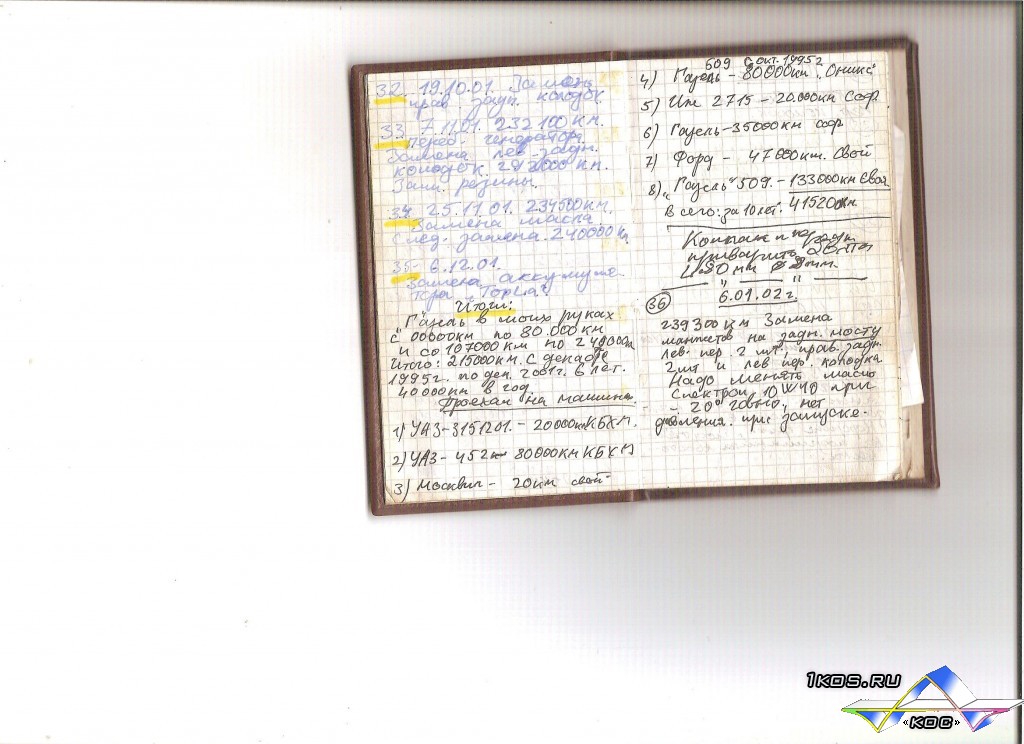 32. 19.10.01. Замена
прав. задн. колодок.
33. 7.11.01. 232100 км.
Перед. генератор
Замена лев. задн.
колодок. 232000 км.
Зим. резины.
34. 25.11.01. 234500 км.
Замена масла.
След. замена. 240000 км
35. 6.12.01.
Замена аккумуля-
тора
Итоги:
"Газель в моих руках
с 00000 км по 80.000 км
и со 107000 км по 240000
Итого: 215000 км. с декабря
1995г. по дек. 2001г. 6 лет.
40000 км в год.
на машинах
1) УАЗ-3151201. - 20000 км КБХМ.
2) УАЗ - 452 - 80000 км КБХМ
3) Москвич - 20 км свой
509 с окт. 1995г
4) Газель - 80000 км „Оникс"
5) Иж 2715 - 20.000 км Соф
6) Газель - 35000 км соф
7) Форд - 47000 км. Свой
8) „Газель" 509. - 133000 км Своя
Всего: за 10 лет. 415200 км
приварить
L-80 мм
36 6.01.02 г.
239300 км Замена
манжетов на задн. мосту
лев. пер. 2 шт., прав. задн.
2 шт и лев пер. колодка
Надо менять масло
Спектрол 10W40 при
- 20° говно. нет
давления. при запуске.
1KOS.RU
«КОС»